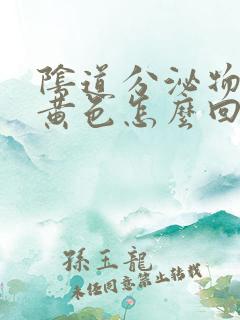 陰道分泌物
黃色怎麼回
孫玉龍
未經同意禁止轉載